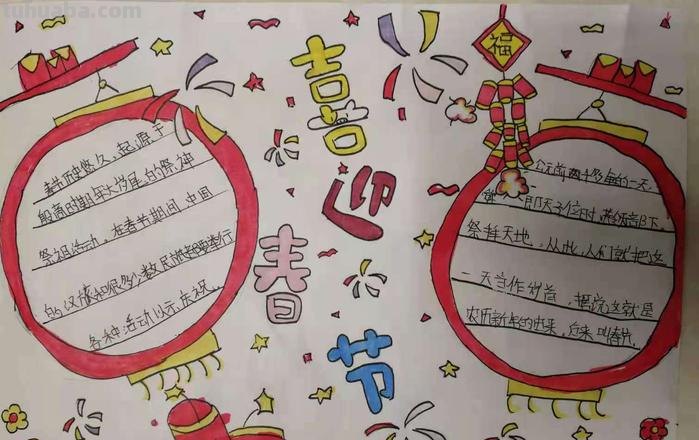 tuhuaba.com
喜
迎
春
节
福
春节历史悠久、起源于
殷商时期年头岁尾的祭神
祭祖活动。在春节期间,中国
的汉族和很多少数民族都要举行
各种活动以示庆祝。
公元前两千多年的一天,
舜即天子位时,带领着部下,
祭拜天地,从此,人们就把这
一天当作岁首,据说这就是
农历新年的由来,后来叫春节。